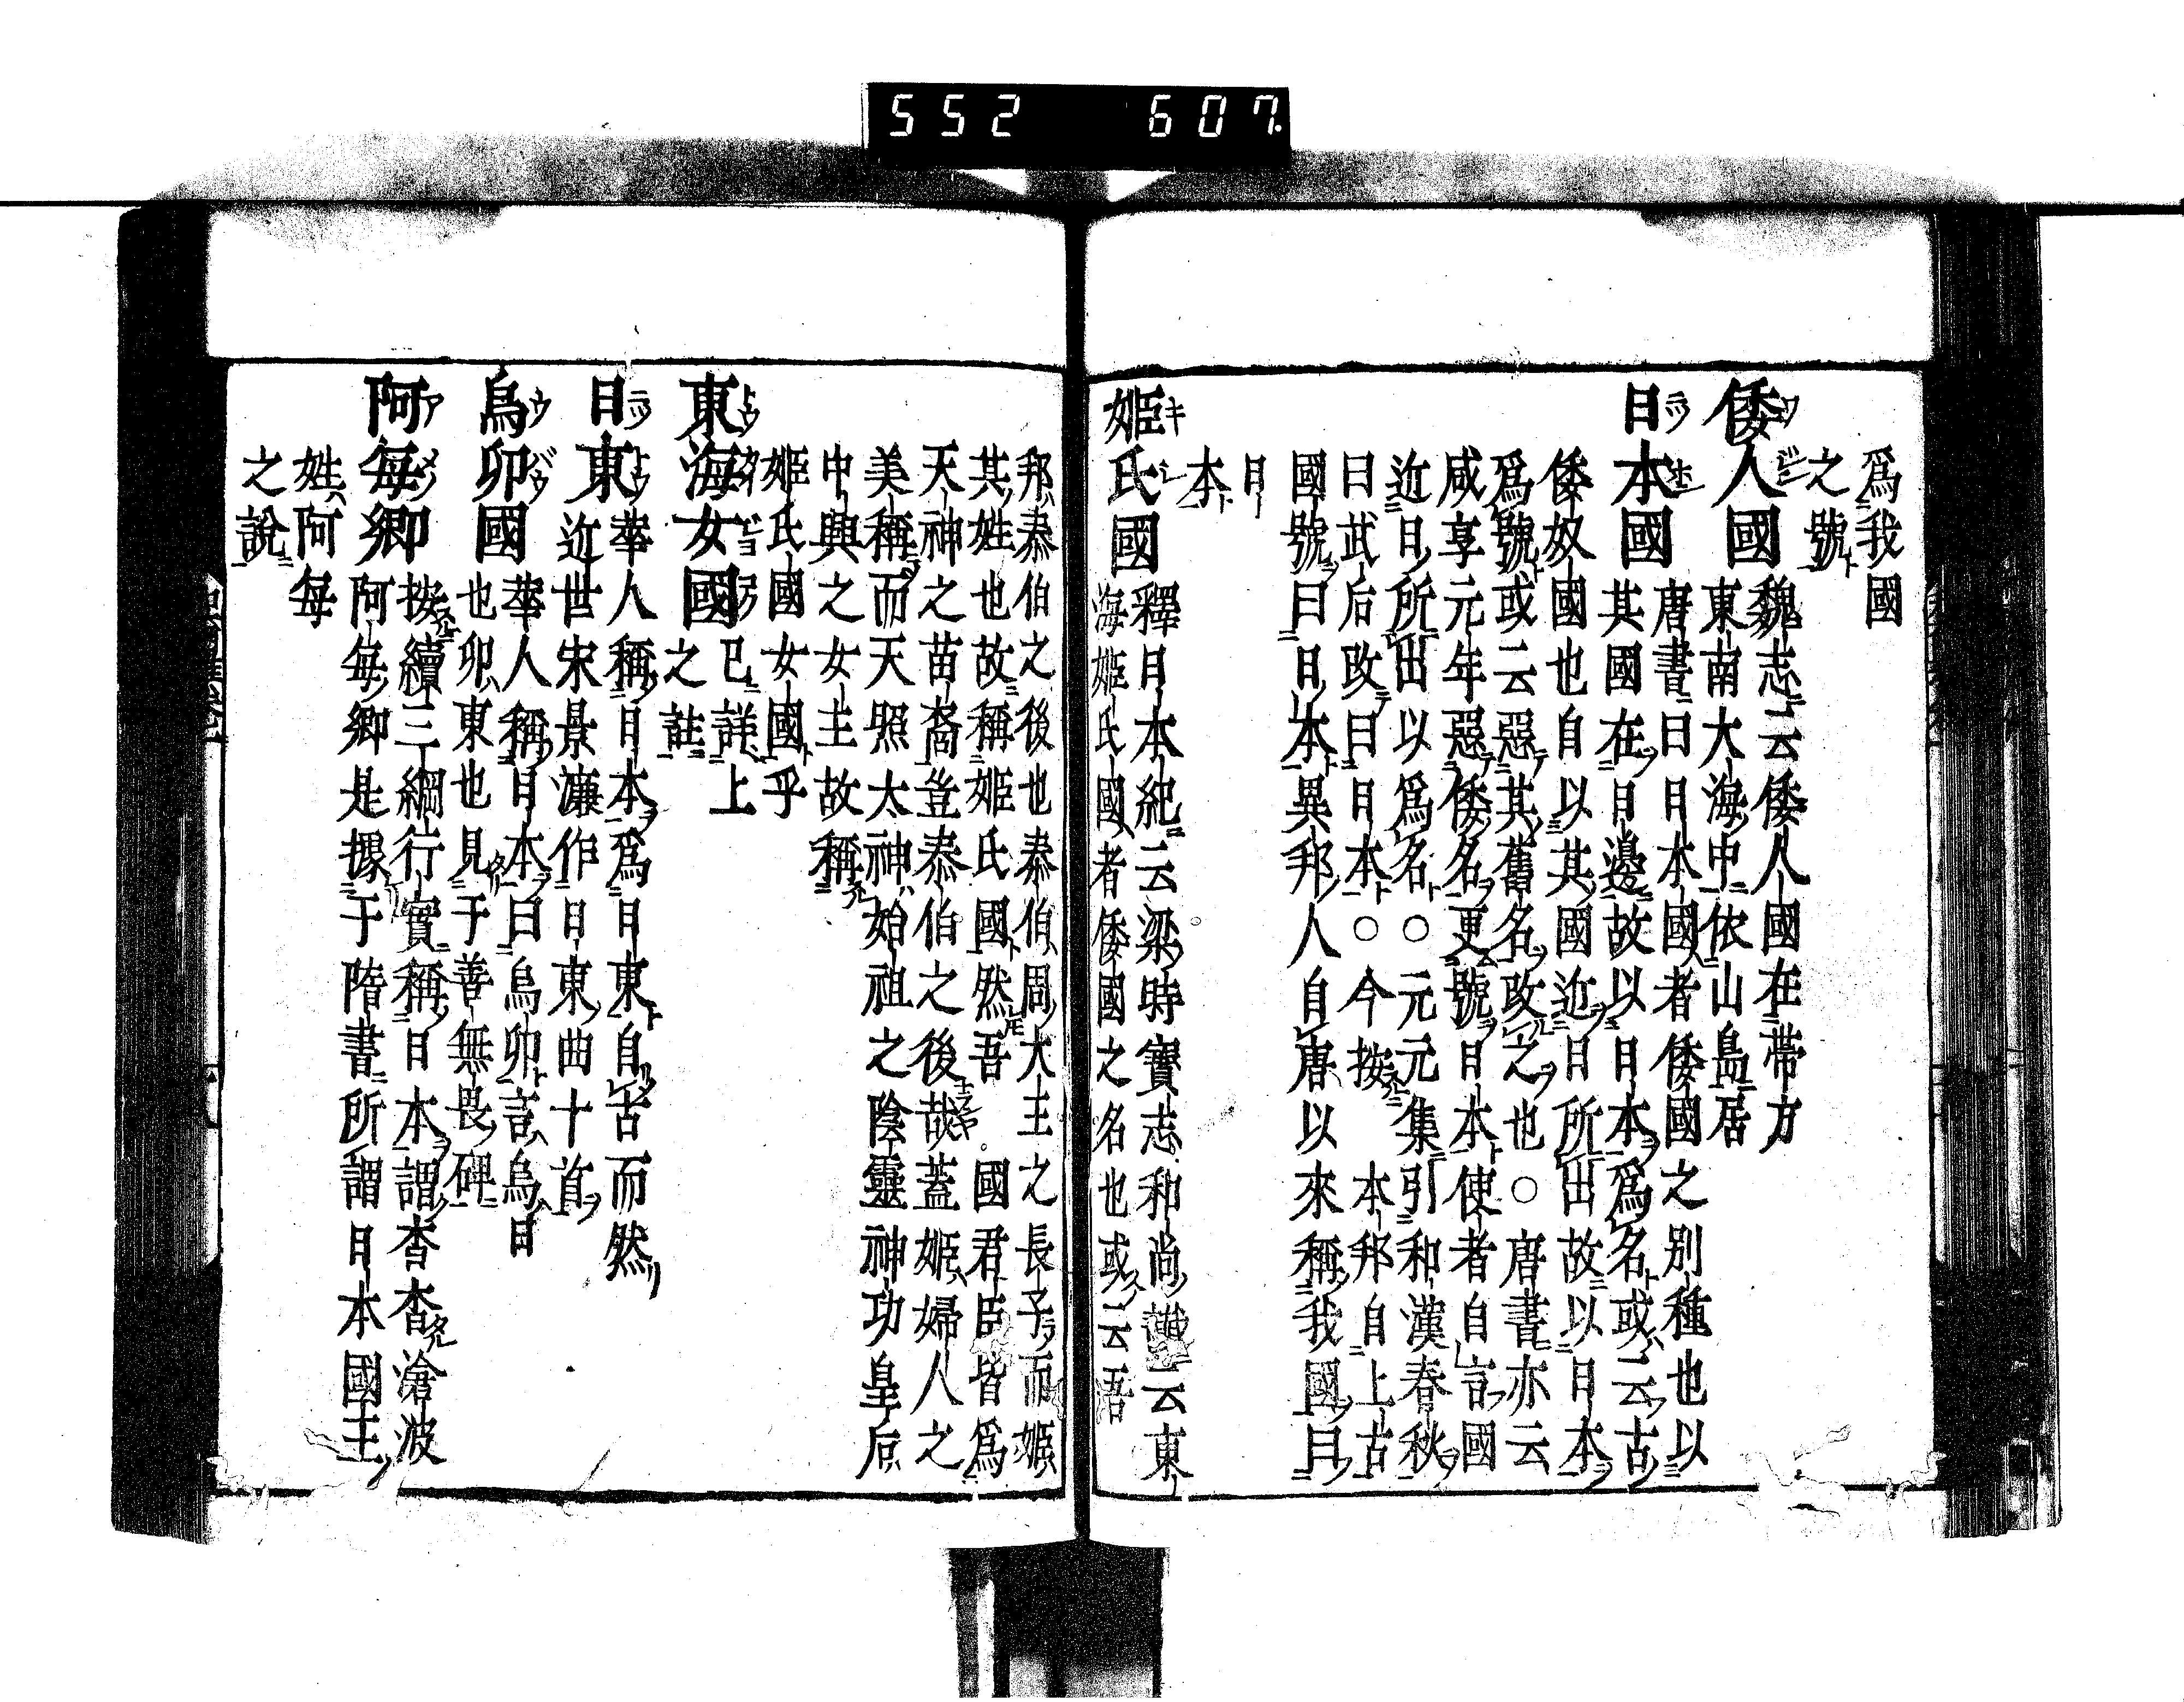 爲我國
之號
倭人國
魏志云倭人國在帶方
東南大海中依山島居
日本國
唐書曰日本國者倭國之別種也以
其國在日邊故以日本爲名或云古
倭奴國也自以其國近日所出故以日本
爲號或云惡其舊名改之也○唐書亦云
咸享元年惡倭名更號日本使者自言國
近日所出以爲名○元元集引和漢春秋
曰武后改曰日本○今按 本邦自上古
國號曰日本異邦人自唐以來稱我國曰
日
本
姬氏國
釋日本紀云梁時寶志和尚讖云東
海姬氏國者倭國之名也或云吾
邦泰伯之後也泰伯周大王之長子而姬
其姓也故稱姬氏國然吾 國君臣皆爲
天神之苗裔豈泰伯之後哉蓋姬婦人之
美稱而天照太神始祖之陰靈神功皇后
中興之女主故稱
姬氏國女國乎
東海女國
已詳上
之註
日東
華人稱日本爲日東自古而然
近世宋景濂作日東曲十首
烏卯國
華人稱日本曰烏卯言烏日
也卯東也見于善無畏碑
阿每卿
按續三綱行實稱日本謂杳杳滄波
阿每卿是據于隋書所謂日本國王
姓阿每
之說
552 607